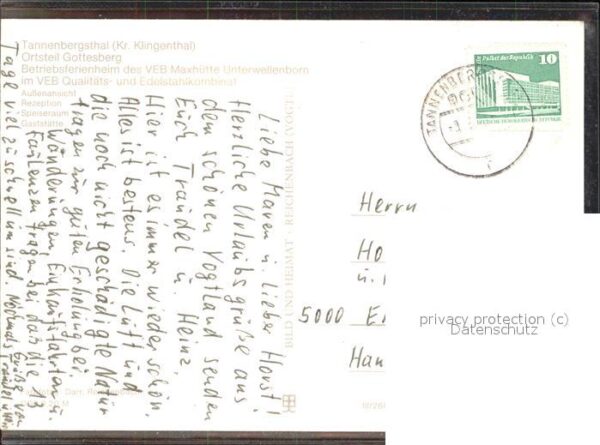 Tannenbergsthal (Kr. Klingenthal)
Ortsteil Gottesberg
Betriebsferienheim des VEB Maxhütte Unterwellenborn
im VEB Qualitäts- und Edelstahlkombinat
Außenansicht
Rezeption
Speiseraum
Gaststätte
Liebe Maren u. lieber Horst!
Herzliche Urlaubsgrüße aus
dem schönen Vogtland senden
Euch Traudel u. Heinz.
Hier ist es immer wieder schön.
Alles ist bestens. Die Luft und
die noch nicht geschädigte Natur
tragen zur guten Erholung bei.
Wanderungen, Einkaufsfahrten u.
Faulenzen tragen bei, daß die 13
Tage viel zu schnell um sind. Nochmals Grüße von
Traudel u. Heinz
BILD UND HEIMAT REICHENBACH (VOGTL)
Palast der Republik
10
TANNENBERG
Herrn
Ho
u.
5000 E
Han
privacy protection (c)
Datenschutz